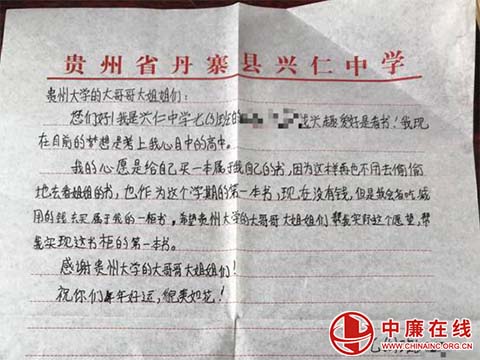 贵州省丹寨县兴仁中学
贵州大学的大哥哥大姐姐们:
您们好!我是兴仁中学七(3)班的 兴趣爱好是看书!我现
在目前的梦想是考上我心目中的高中。
我的心愿是给自己买一本属于我自己的书,因为这样再也不用去偷偷
地去看姐姐的书,也作为这个学期的第一本书,现在没有钱,但是我会省吃俭
用的钱去买属于我的一柜书,希望贵州大学的大哥哥大姐姐们帮我实现这个愿望,帮
我实现这书柜的第一本书。
感谢贵州大学的大哥哥大姐姐们!
祝你们年年好运,貌美如花!
中廉在线
WWW.CHINAINC.ORG.CN